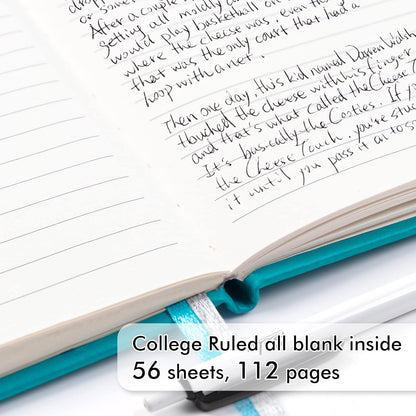 or some
After a couple
getting all moldy a
would play basketball on
where the cheese was, even tho
that was the only court that had a
hoop with a net.
Then one day, this kid named Darren Walsh
touched the cheese with his finger
and that's what called the Cheese T
It's basically the Cooties. If yo
the Cheese Touch, you're stu
it until you pass it on to so
College Ruled all blank inside
56 sheets, 112 pages